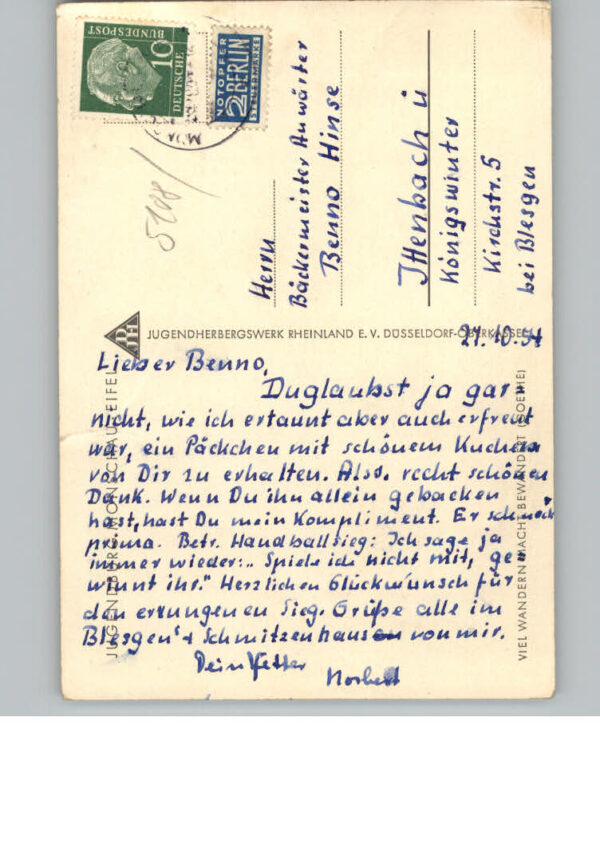 DEUTSCHE
BUNDESPOST
10
NOTOPFER
2 BERLIN
STEUERMARKE
5108
Herrn
Bäckermeister Anwärter
Benno Hinse
Ittenbach ü
Königswinter
Kirchstr. 5
bei Blesgen
DJH
JUGENDHERBERGSWERK RHEINLAND E. V. DÜSSELDORF-OBERKASSEL
JUGENDHERBERGE MONSCHAU/EIFEL
VIEL WANDERN MACHT BEWANDERT (GOETHE)
27.10.54
Lieber Benno,
Du glaubst ja gar
nicht, wie ich ertaunt aber auch erfreut
war, ein Päckchen mit schönem Kuchen
von Dir zu erhalten. Also. recht schönen
Dank. Wenn Du ihn allein gebacken
hast, hast Du mein Kompliment. Er schmeckt
prima. Betr. Handballsieg: Ich sage ja
immer wieder: „Spiele ich nicht mit, ge-
winnt ihr." Herzlichen Glückwunsch für
den errungenen Sieg. Grüße alle im
Blesgen's + Schmitzenhaus von mir.
Dein Vetter
Norbert